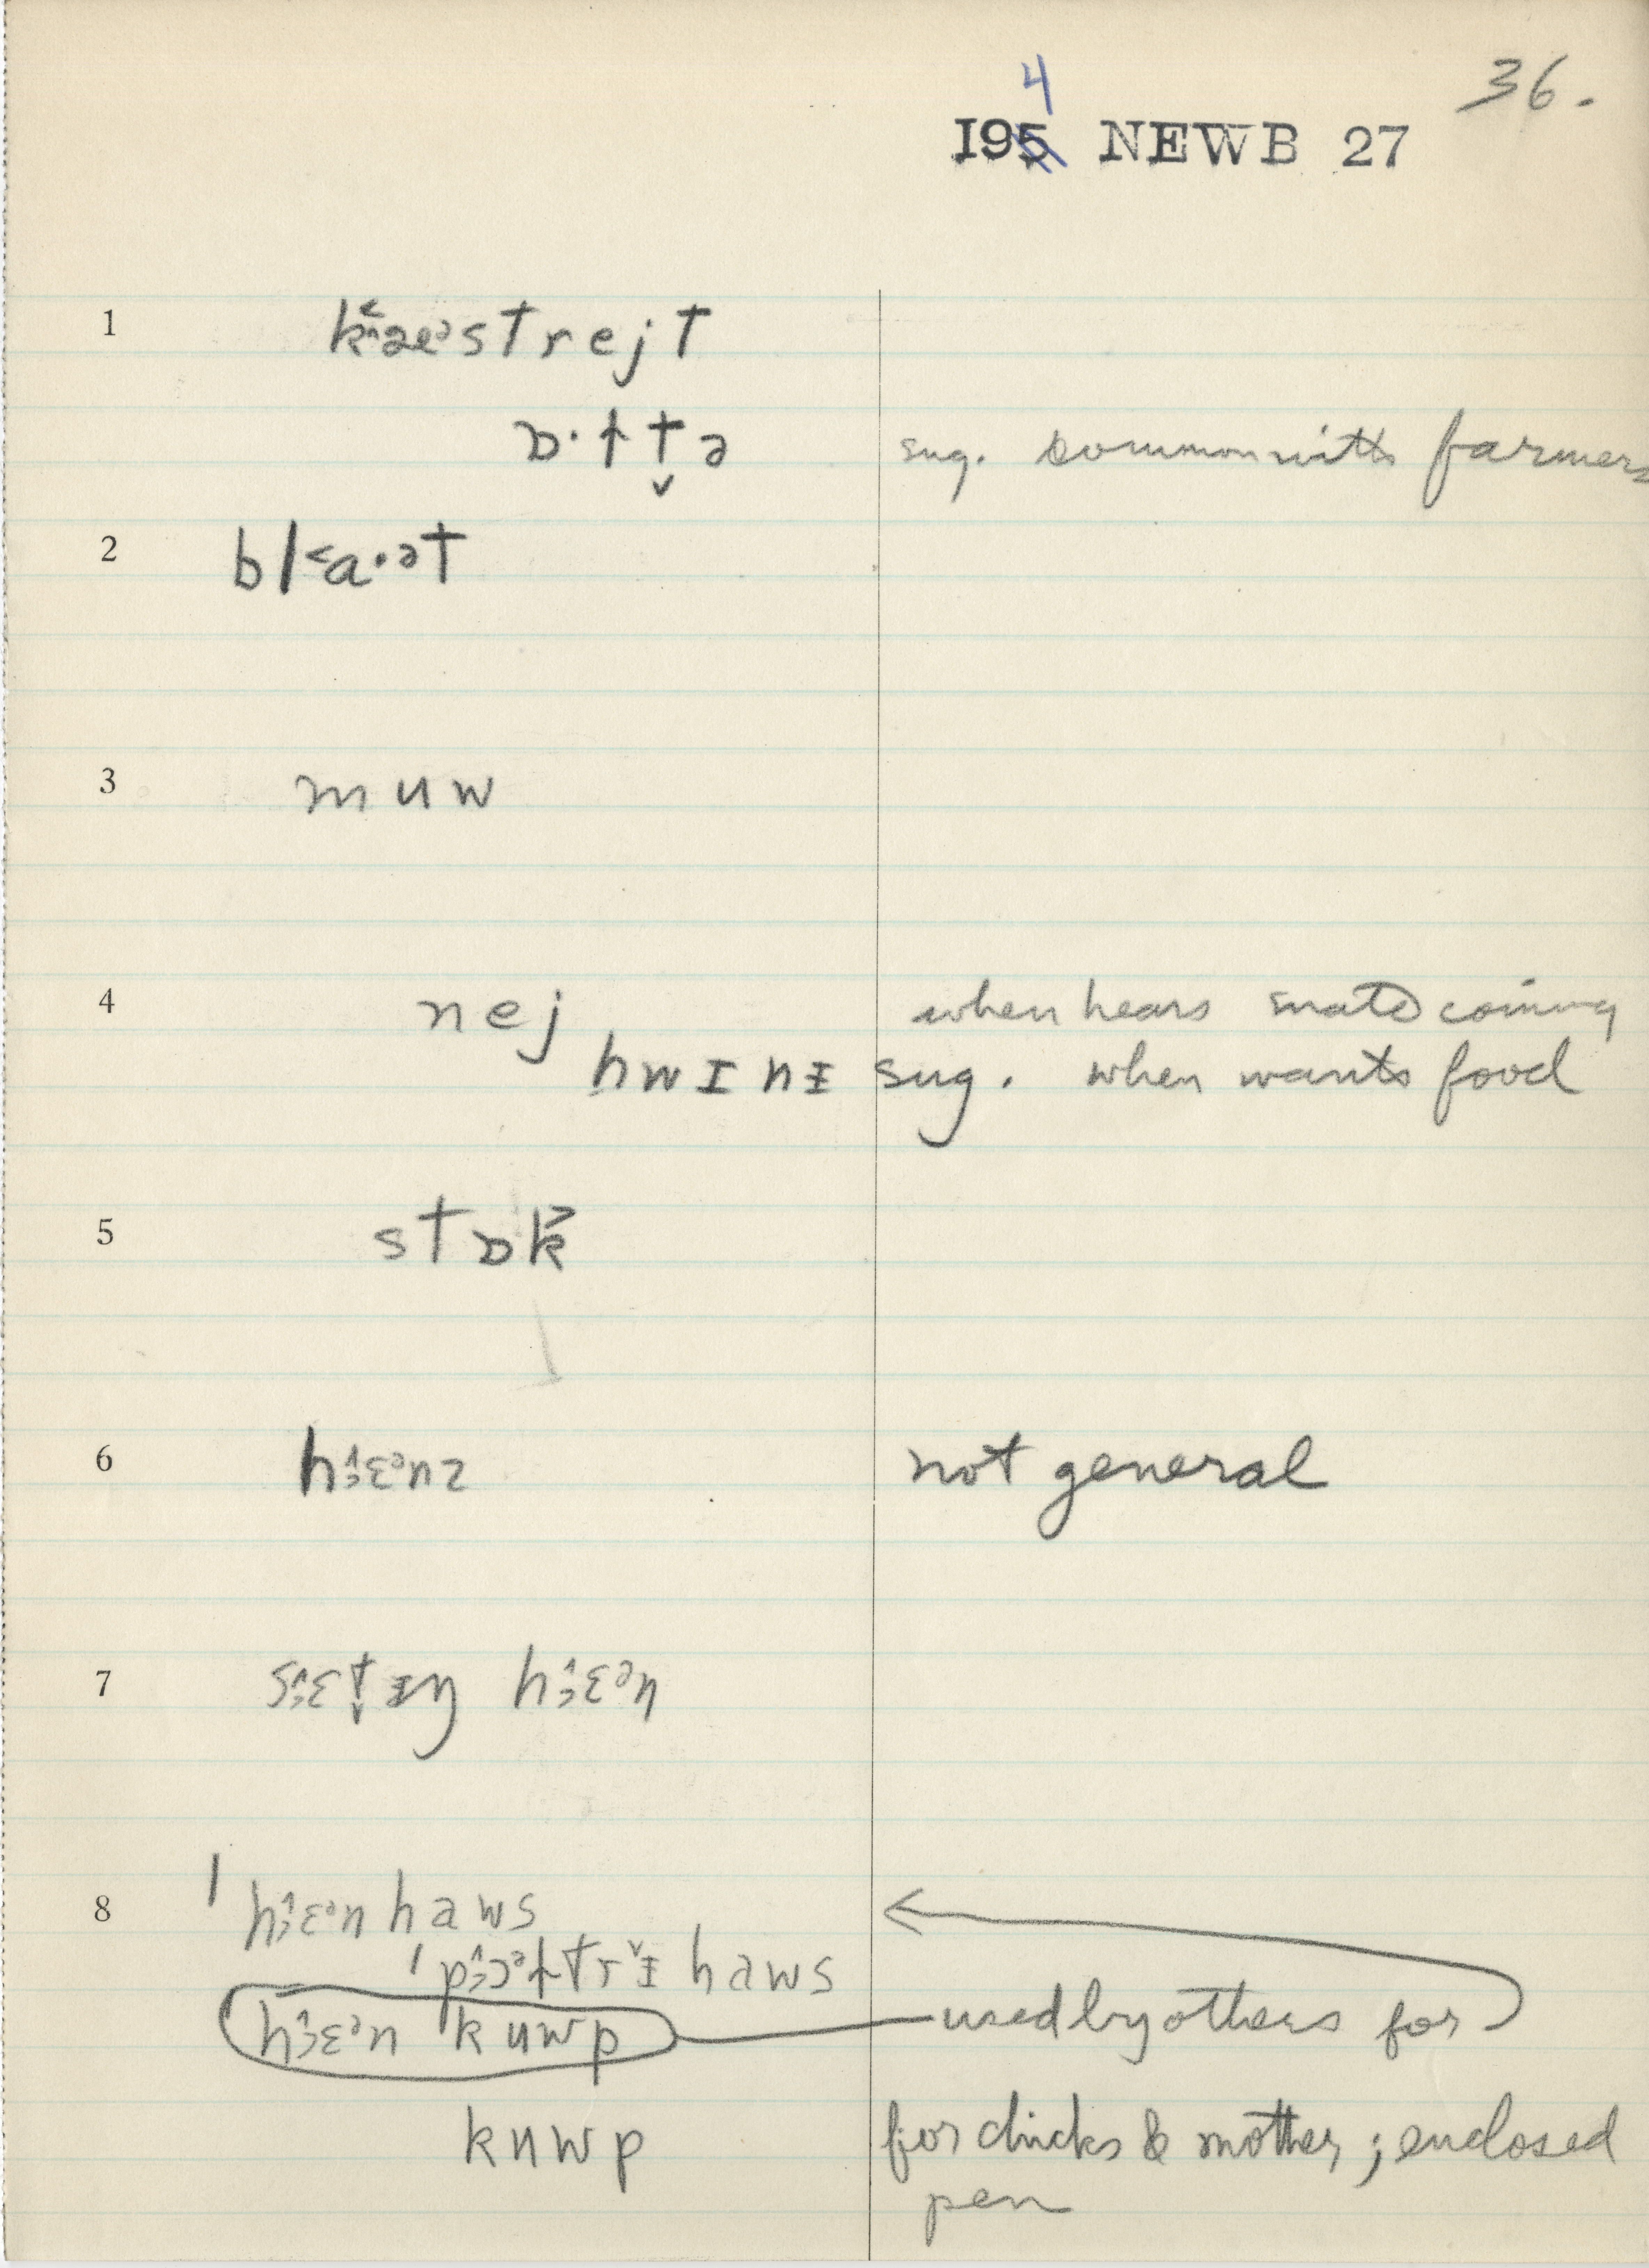 36.
4
I95 NEWB 27
1 k˂æᵊstrejt
ɒ·ɫt̬ə sug. common with farmers
2 bl˂a·ᵊt
3 muw
4 nej when hears mate coming
hwɪnɪ sug. when wants food
5 stɒk˃
6 hɛᵊnz not general
7 sɛt̬ɪŋ hɛᵊn
8 ˈhɛᵊnhaws
haws
hɛᵊn ˈkuwp used by others for
kuwp for chicks & mother; enclosed
pen